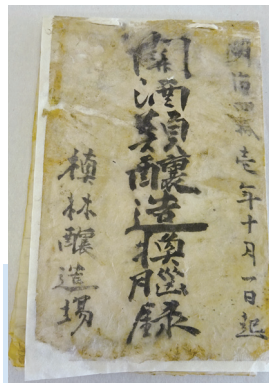 明治四拾壱年十月一日起
酒類釀造換録
槙林釀造場